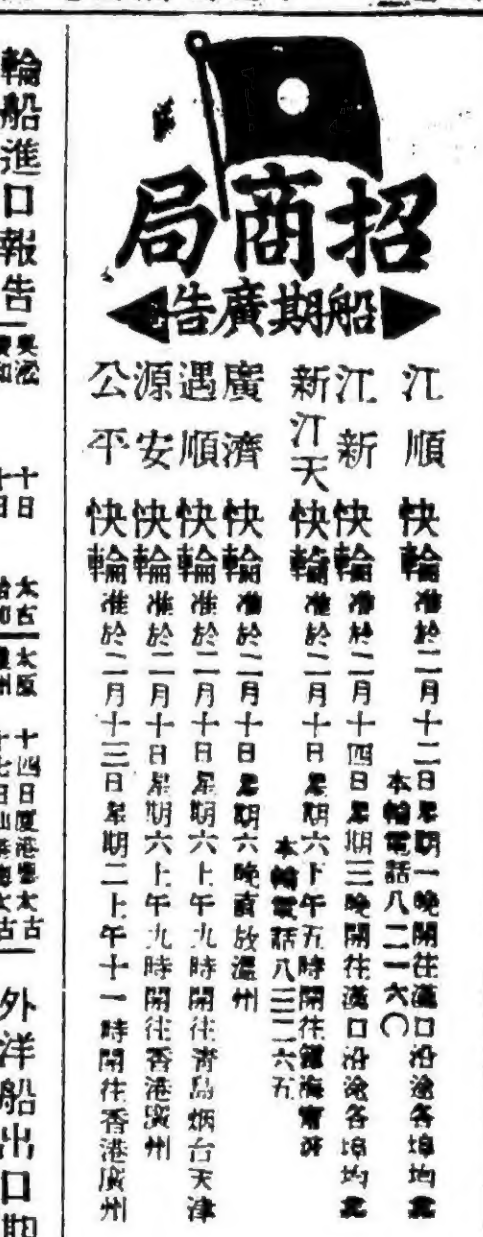 招商局
船期廣告
江順快輪准於二月十二日星期一晚開往漢口沿途各埠均靠
本輪電話八二一六〇
江新快輪准於二月十四日星期三晚開往漢口沿途各埠均靠
新江天快輪准於二月十日星期六下午五時開往鎮海甯波
本輪電話八三二六五
廣濟快輪准於二月十日星期六晚直放溫州
遇順快輪准於二月十日星期六上午九時開往青島烟台天津
源安快輪准於二月十日星期六上午九時開往香港廣州
公平快輪准於二月十三日星期二上午十一時開往香港廣州
輪船進口報告
吳淞
十日
太古
太原
十四日廈港粵太古
外洋船出口期